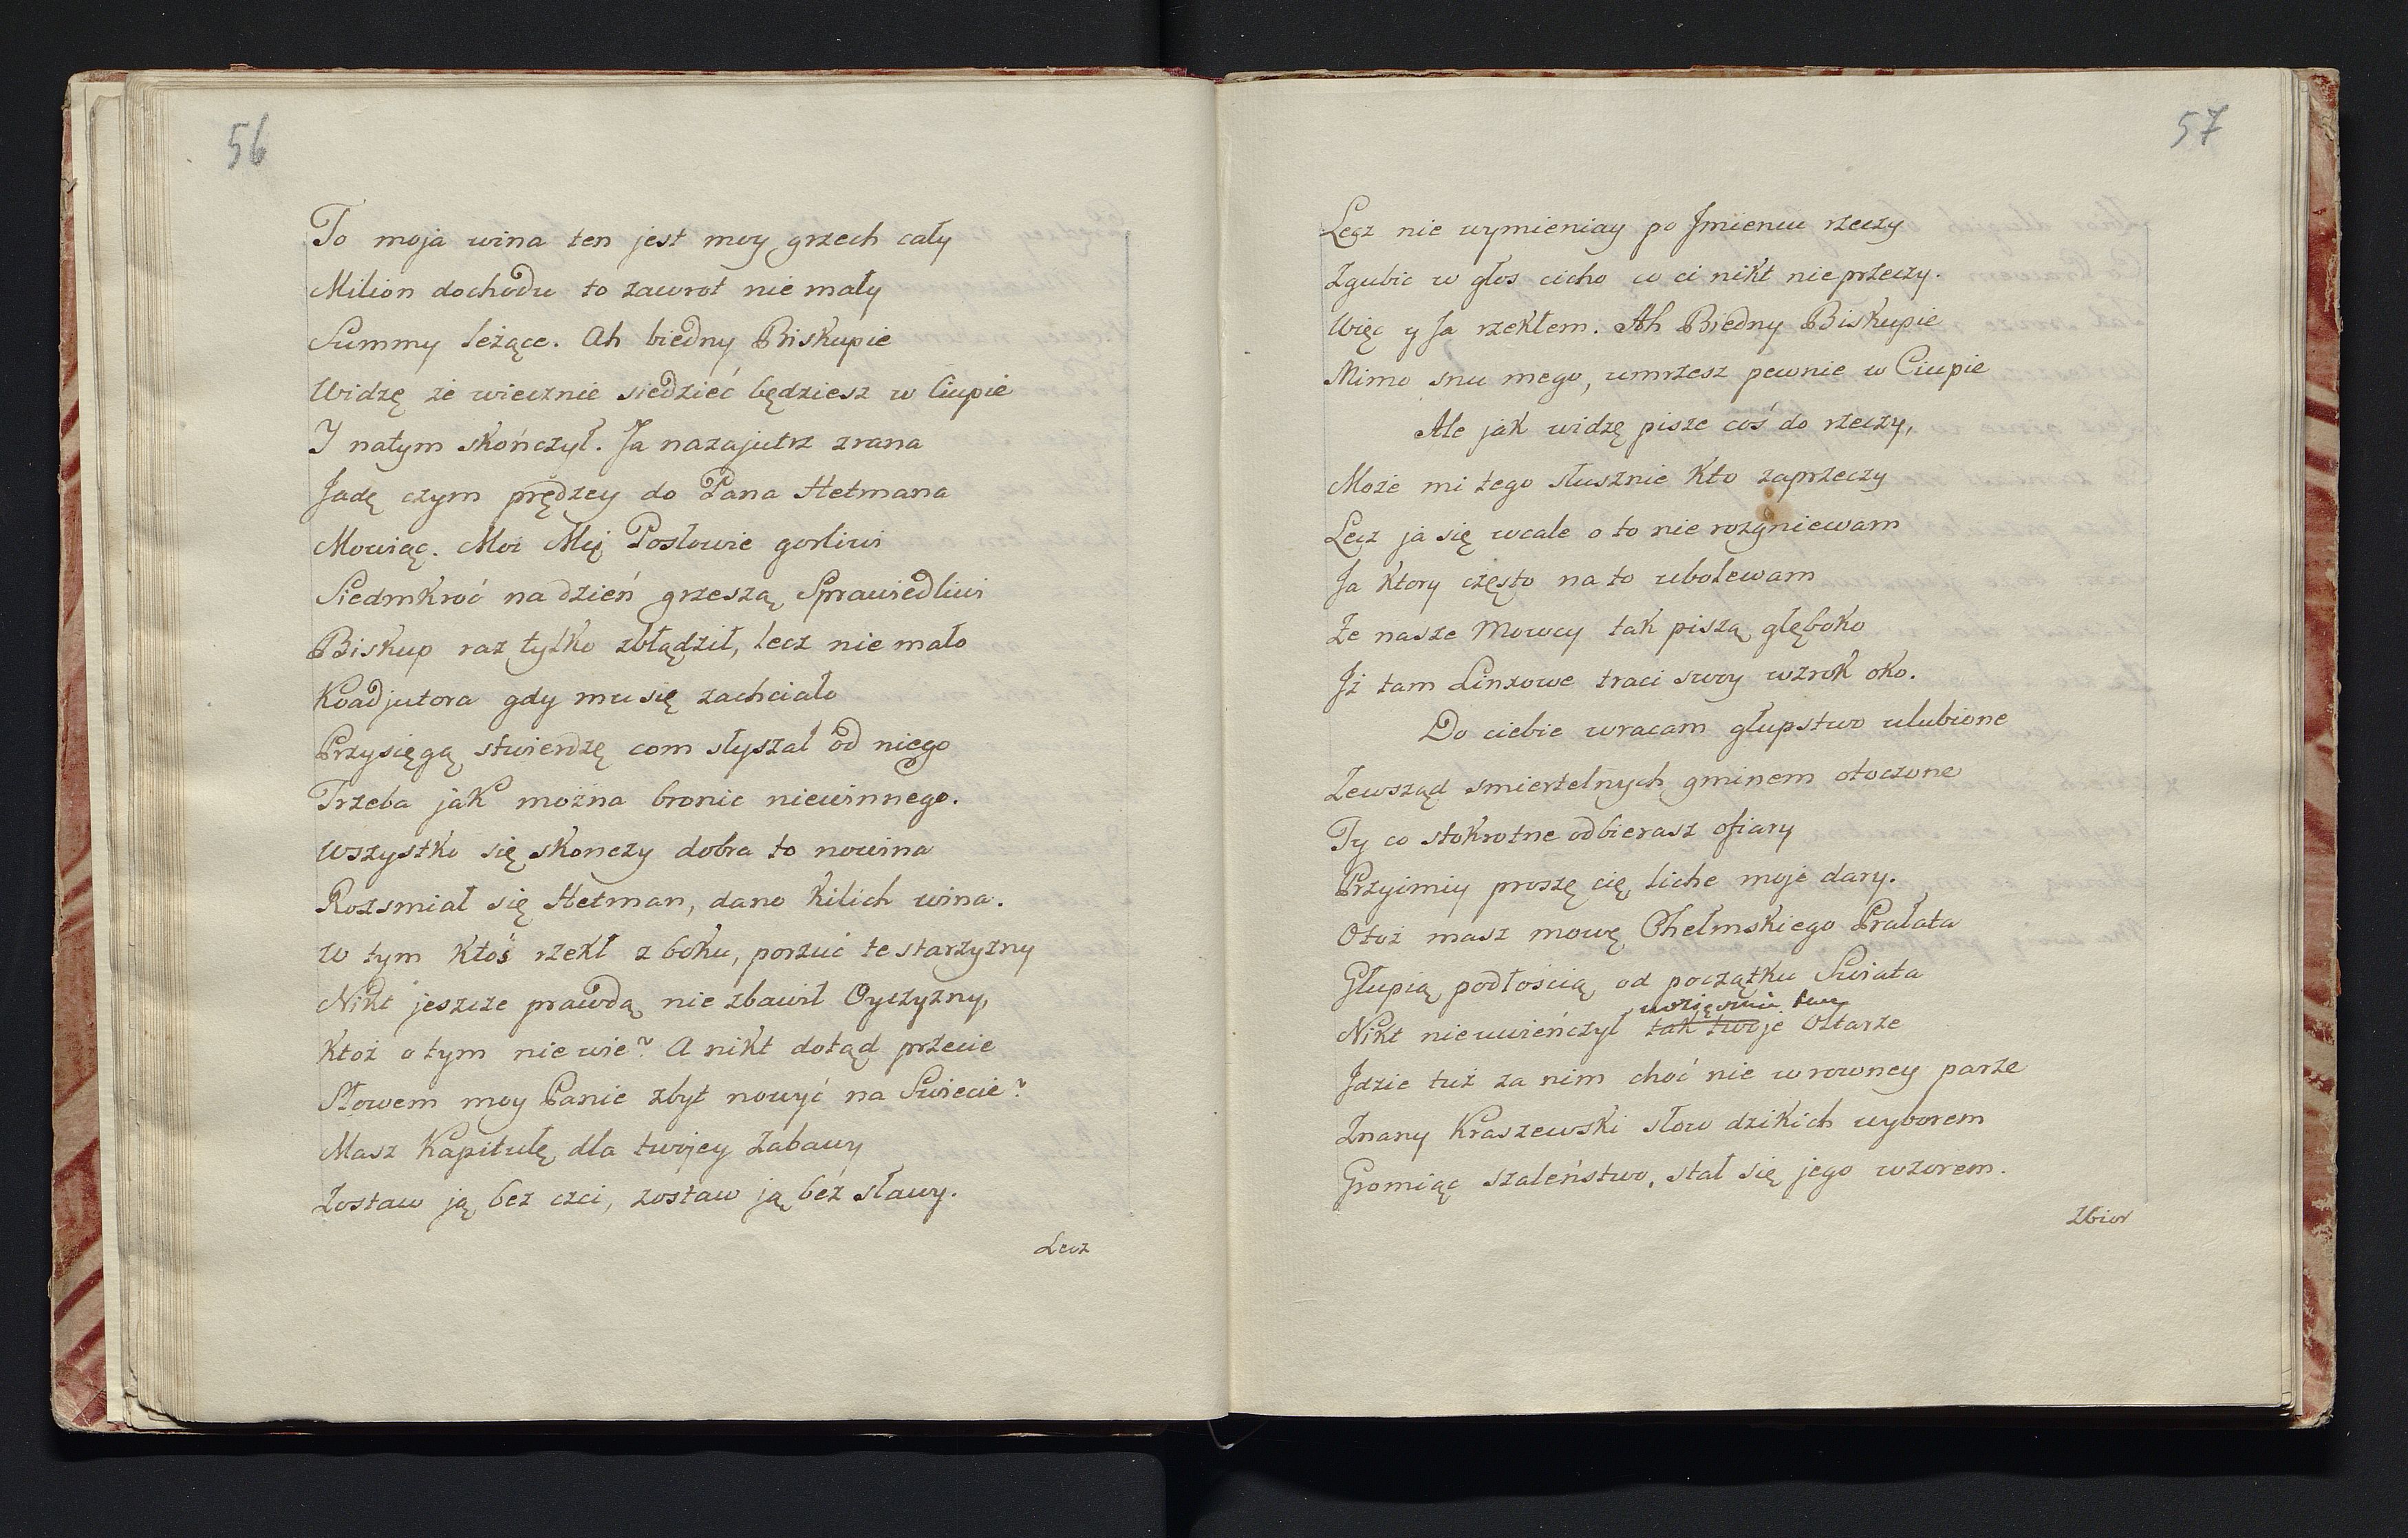 56
To moja wina ten jest moy grzech cały
Milion dochodu to zawrot nie mały
Summy leżące. Ah biedny Biskupie
Widzę że wiecznie siedzieć będziesz w Ciupie
I natym skończył. Ja nazajutrz zrana
Jadę czym prędzey do Pana Hetmana
Mowiąc. Moi Mći Posłowie gorliwi
Siedmkroć na dzień grzeszą Sprawiedliwi
Biskup raz tylko zbłądził, lecz nie mało
Koadjutora gdy mu się zachciało
Przysięgą stwierdzę com słyszał od niego
Trzeba jak można bronic niewinnego.
Wszystko się skonczy dobra to nowina
Rozsmiał się Hetman, dano kilich wina.
W tym ktoś rzekł z boku, porzuć te starzyzny
Nikt jeszcze prawdą nie zbawił Oyczyzny,
Ktoż o tym nie wie? A nikt dotąd przecie
Słowem moy Panie zbyt nowyć na Swiecie?
Masz Kapitulę dla twojey zabawy
Zostaw ją bez czci, zostaw ją bez sławy.
Lecz
57
Lecz nie wymieniay po Jmieniu rzeczy
Zgubic w głos cicho co ci nikt nie przeczy.
Więc y Ja rzekłem. Ah Biedny Biskupie
Mimo snu mego, umrzesz pewnie w Ciupie
Ale jak widzę pisze coś do rzeczy,
Może mi tego słusznie kto zaprzeczy
Lecz ja się wcale o to nie rozgniewam
Ja ktory często na to ubolewam
Że nasze Mowcy tak piszą głęboko
Jż tam Linxowe traci swoy wzrok oko.
Do ciebie wracam głupstwo ulubione
Zewsząd smiertelnych gminem otoczone
Ty co stokrotne odbierasz ofiary
Przyimiy proszę cię liche moje dary.
Otoż masz mowę Chełmskiego Prałata
Głupią podłością od początku Swiata
Nikt nie uwieńczył tak twoje Ołtarze
Jdzie tuż za nim choć nie w rowney parze
Znany Kraszewski słow dzikich wyborem
Gromiąc szaleństwo, stał się jego wzorem.
Zbior